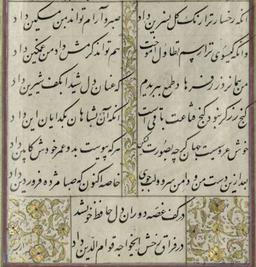 آنکه رخسار ترا رنگ گل و نسرین داد صبر و آرام تواند بمن مسکین داد
وانکه گیسوی ترا رسم تطاول آموخت هم تواند کرمش داد من غمگین داد
من همان روز ز فرهاد طمع ببریدم که عنان دل شیدا بکف شیرین داد
گنج زر گر نبود کنج قناعت باقیست آنکه آن داد بشاهان بگدایان این داد
خوش عروسیست جهان صورت که پیوست بدو عمر خودش کاوین داد
بعد ازین دست من و دامن سرو و لب جوی خاصه اکنون که صبا مژده فروردین داد
در کف غصه دوران دل حافظ خون شد
در فراق رخش ای خواجه قوام الدین داد